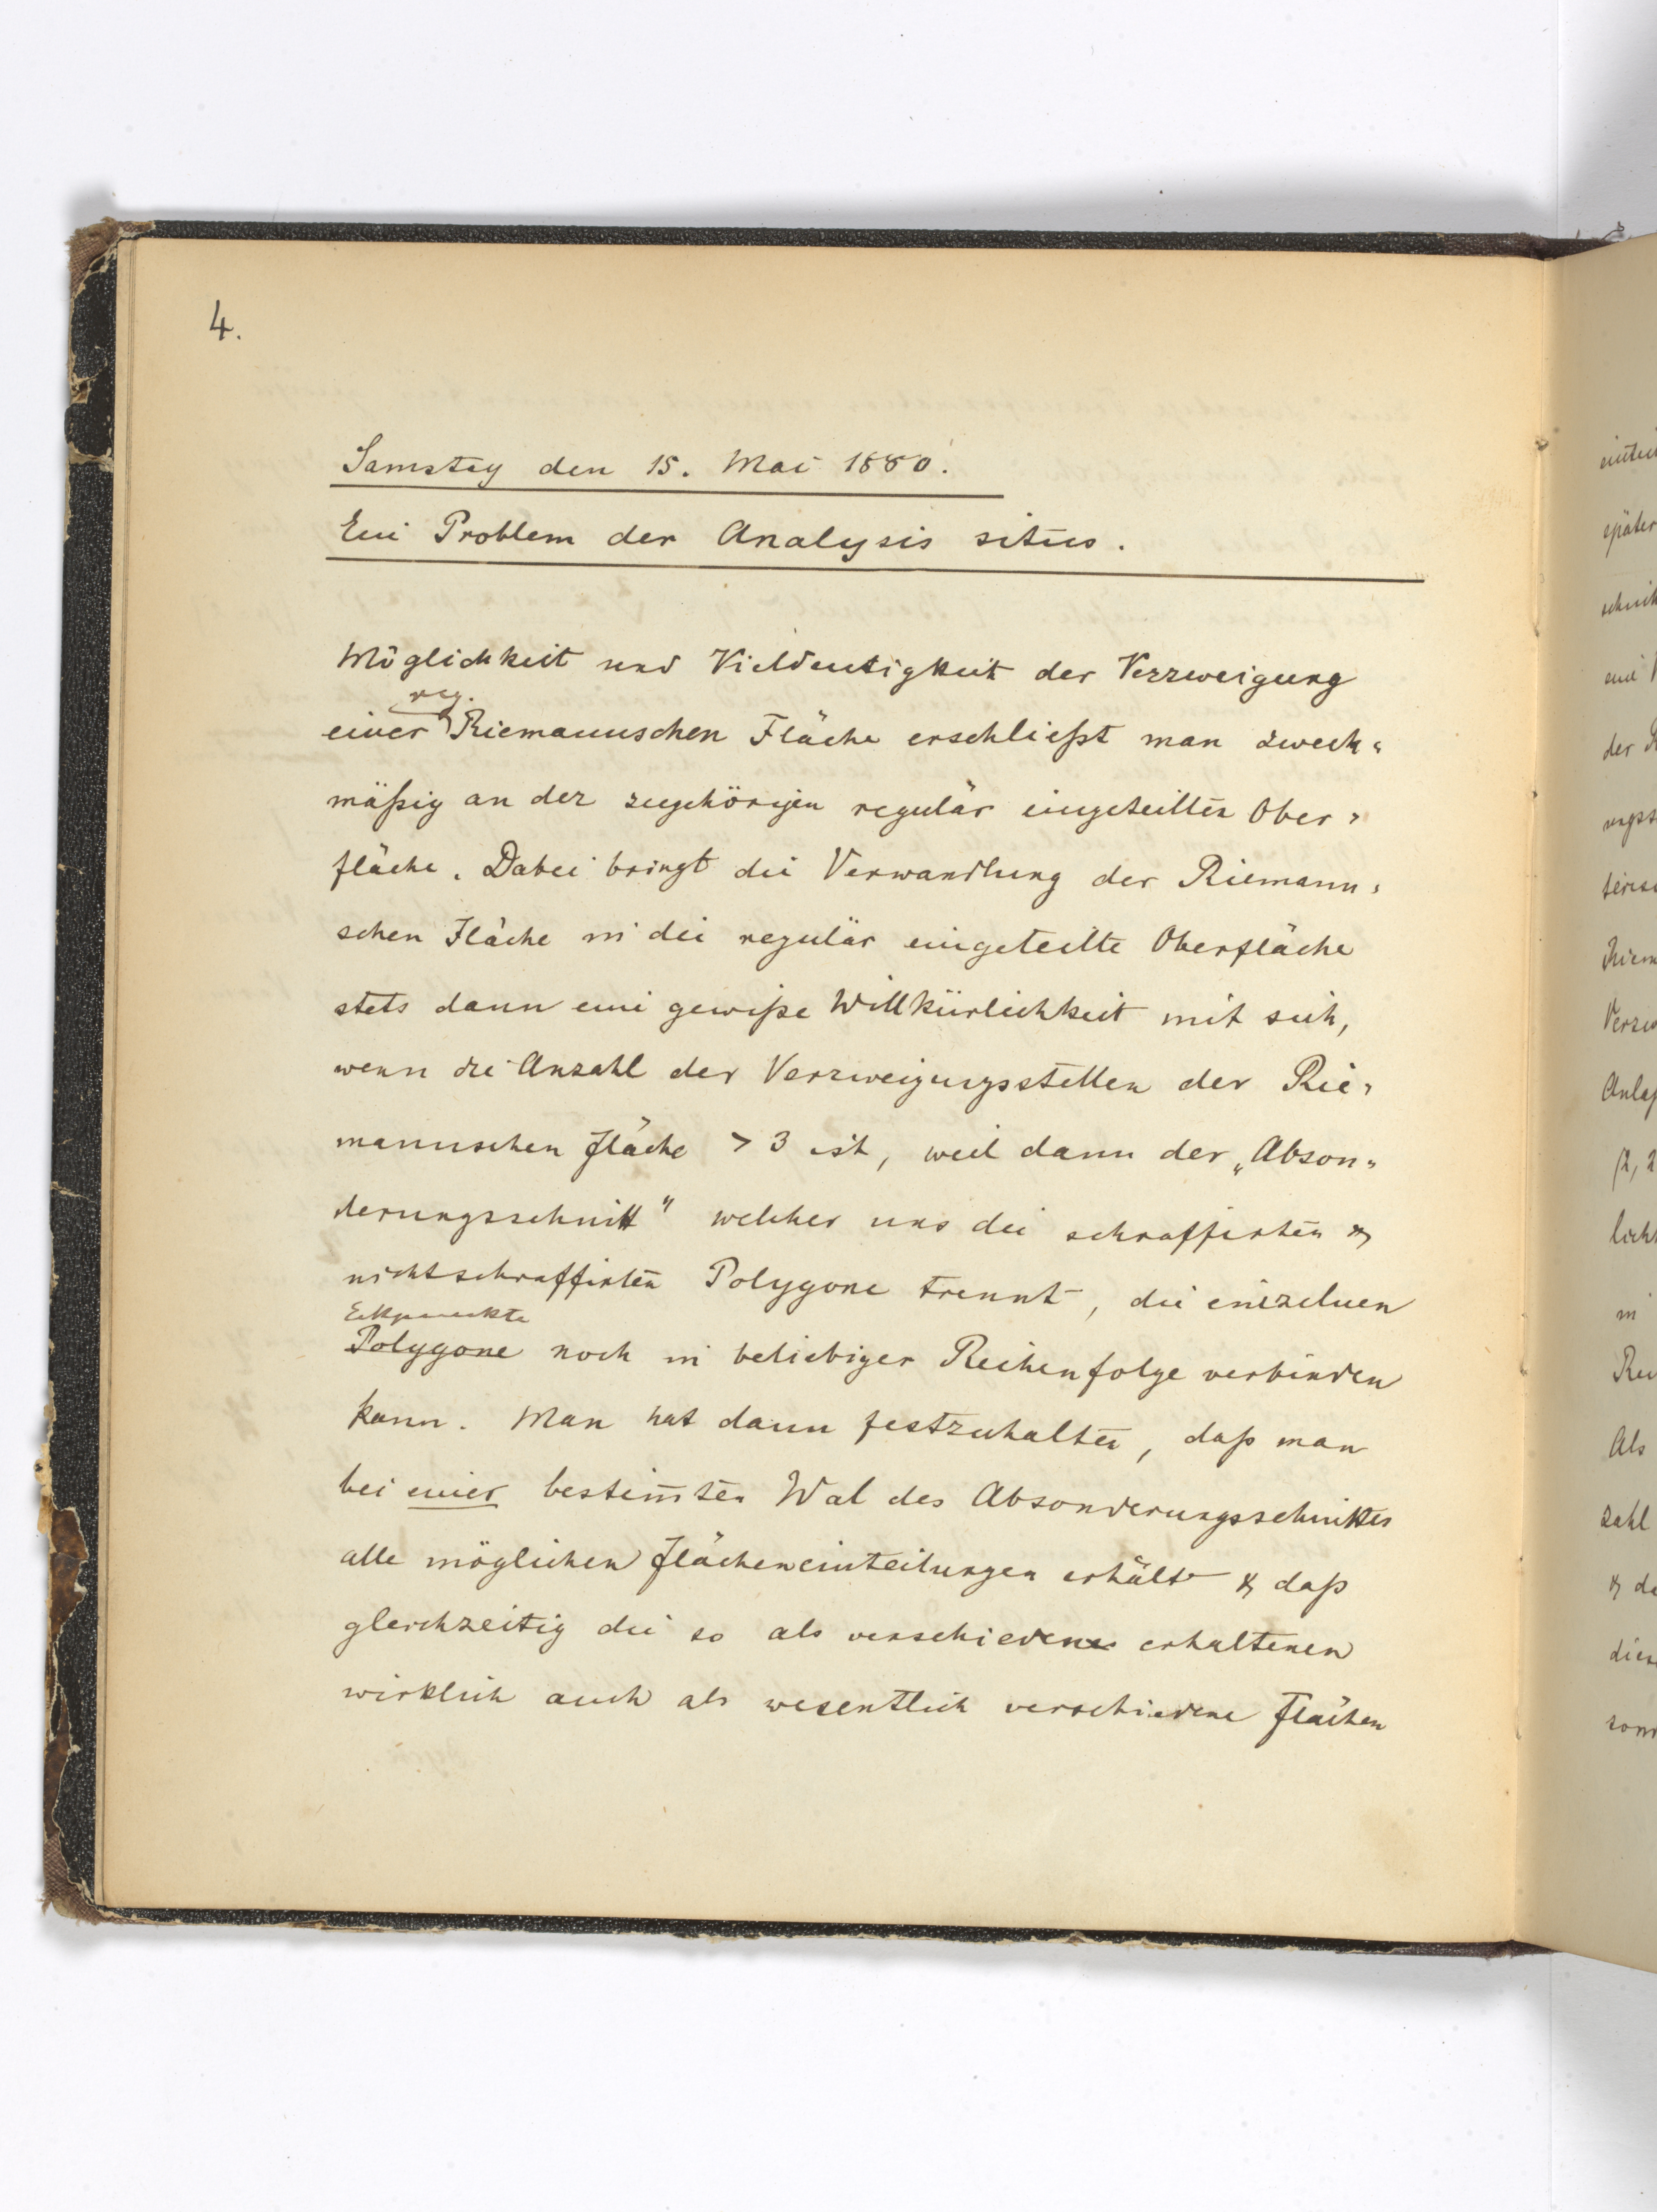 4.
Samstag den 15. Mai 1880.
Ein Problem der Analysis situs.
Möglichkeit und Vieldeutigkeit der Verzweigung
reg.
einer Riemannschen Fläche erschließt man zweck=
mäßig an der zugehörigen regulär eingeteilten Ober=
fläche. Dabei bringt die Verwandlung der Riemann=
schen Fläche in die regulär eingeteilte Oberfläche
stets dann eine gewiße Willkürlichkeit mit sich,
wenn die Anzahl der Verzweigungsstellen der Rie=
mannschen Fläche > 3 ist, weil dann der „Abson=
derungsschnitt" welcher uns die schraffirten &
nichtschraffirten Polygone trennt, die einzelnen
Eckpunkte
Polygone noch in beliebiger Reihenfolge verbinden
kann. Man hat dann festzuhalten, daß man
bei einer bestim̅ten Wal des Absonderungsschnittes
alle möglichen Flächeneinteilungen erhält & daß
gleichzeitig die so als verschiedene erhaltenen
wirklich auch als wesentlich verschiedene Flächen
später
der
Als
zahl
& de